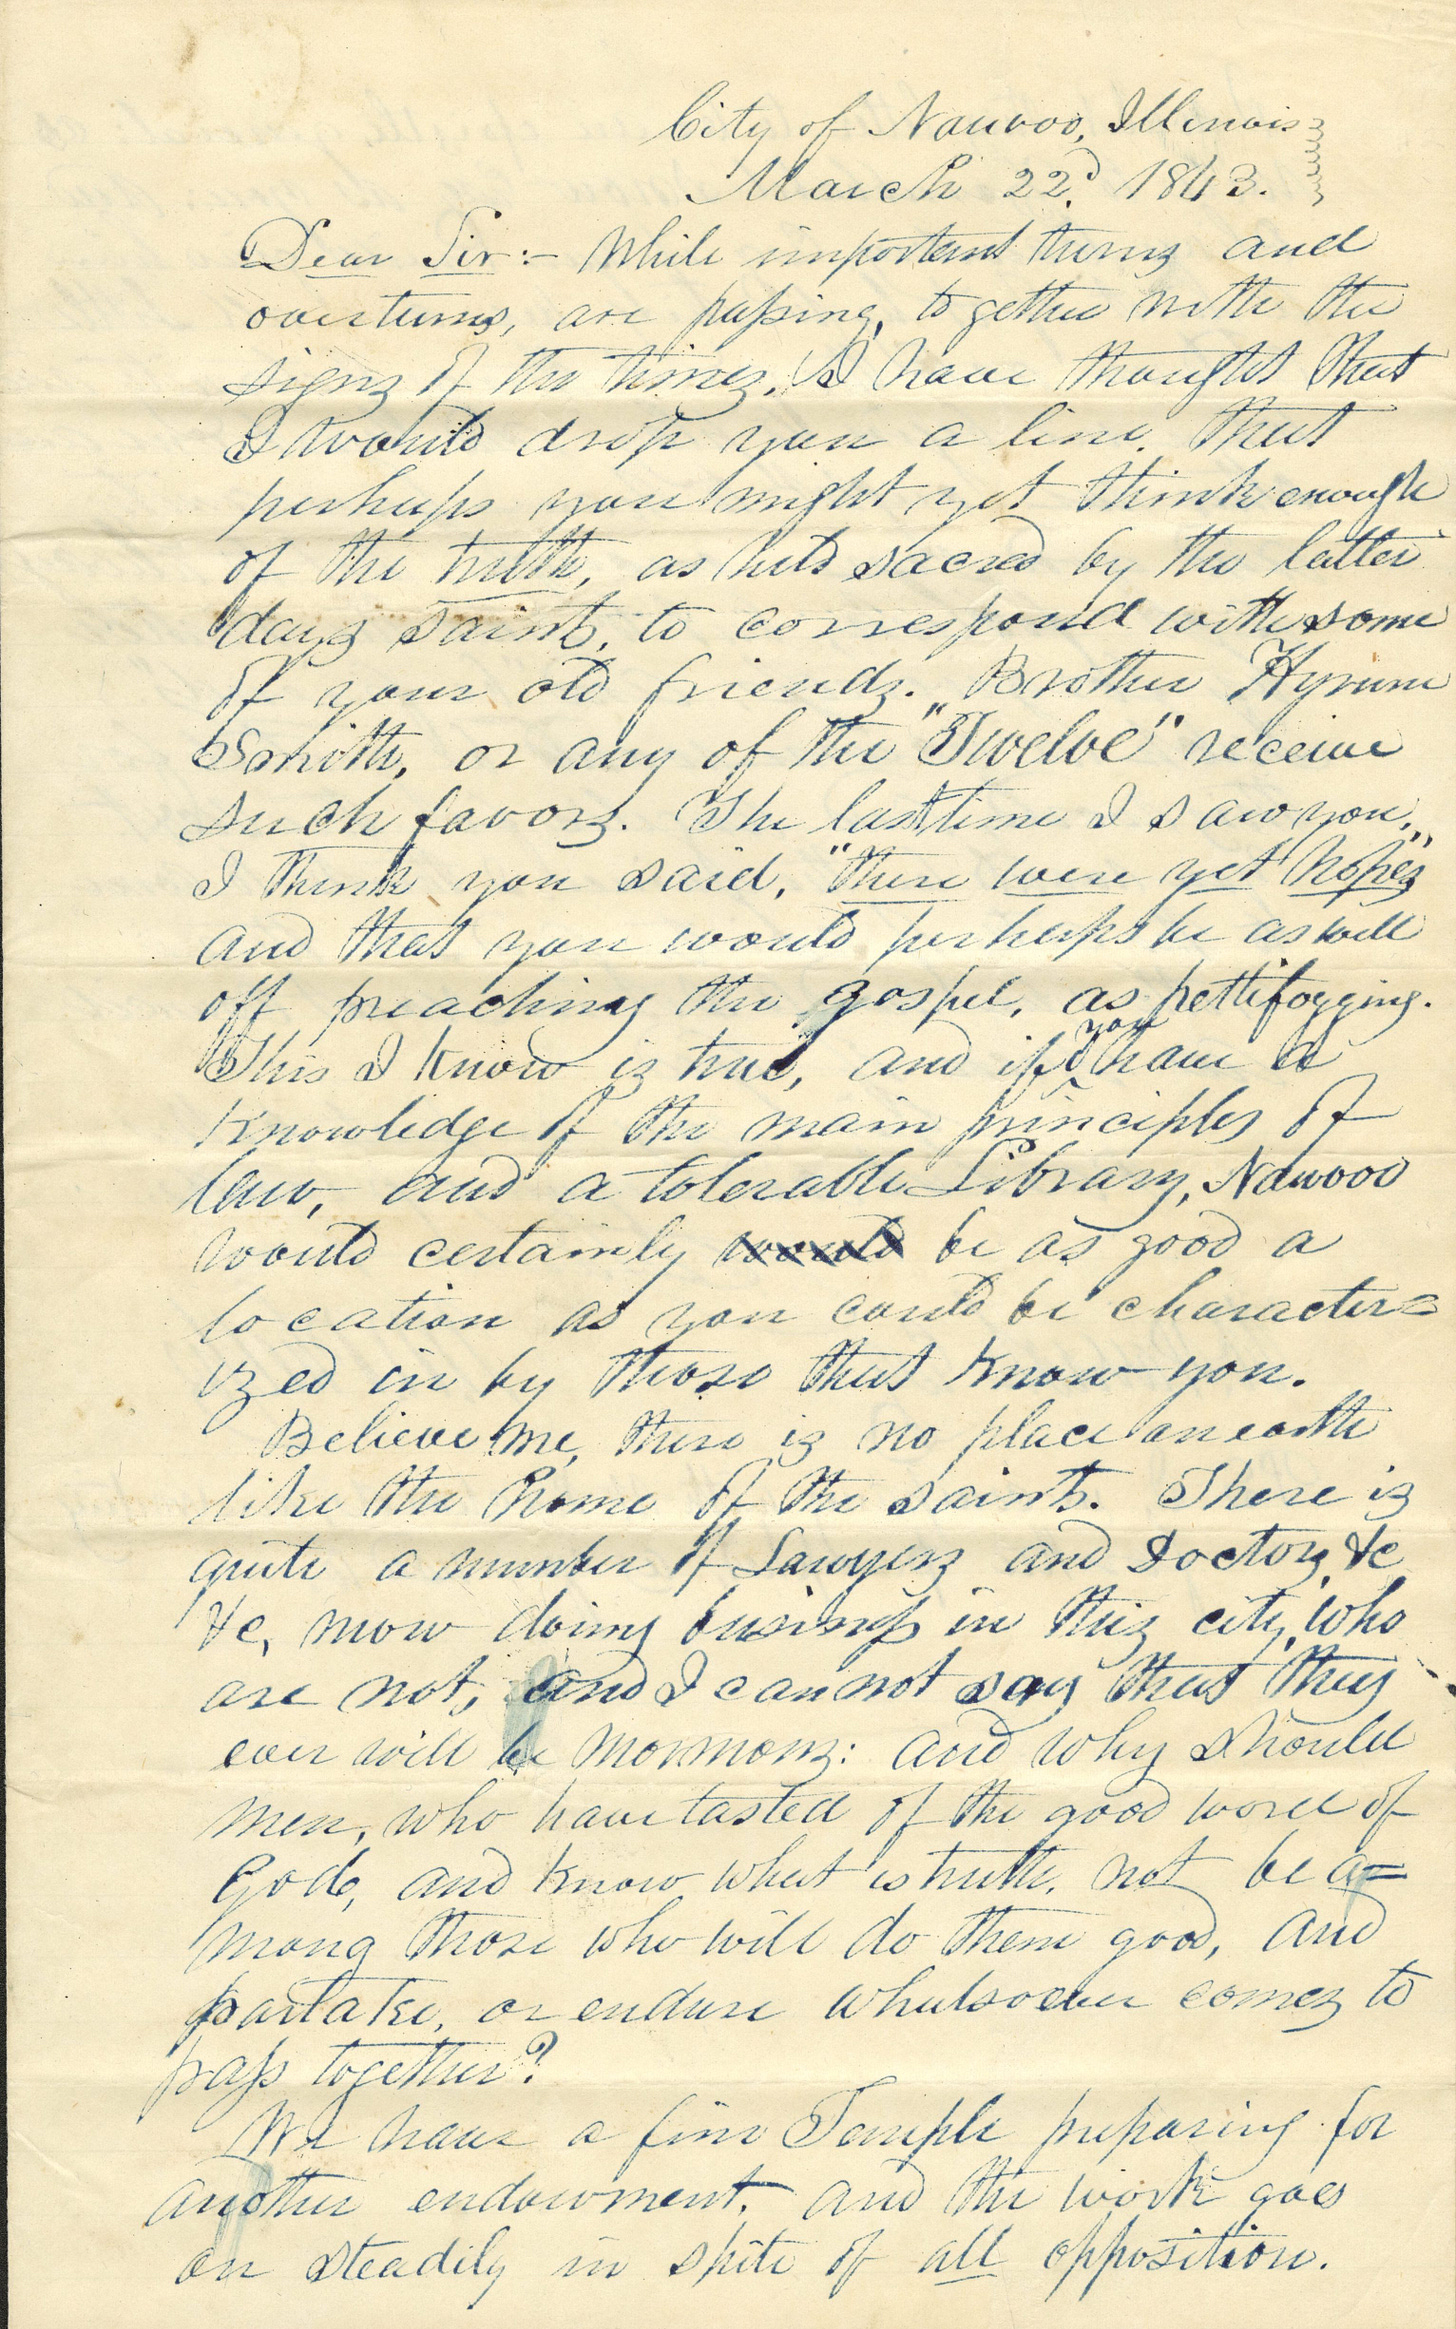 City of Nauvoo, Illinois
March 22d, 1843.
Dear Sir:- While important turns and
overturns, are passing, together with the
signs of the times, I have thought that
I would drop you a line, that
perhaps you might yet think enough
of the truth, as held sacred by the latter
day saints, to correspond with some
of your old friends. Brother Hyrum
Smith, or any of the "Twelve" receive
such favors. The last time I saw you,
I think you said, "there were yet hopes"
and that you would perhaps be as well
off preaching the gospel, as pettifogging.
This I know is true, and if you have a
knowledge of the main principles of
law, and a tolerable Library, Nauvoo
would certainly would be as good a
location as you could be character=
ized in by those that know you.
Believe me, there is no place on earth
like the home of the saints. There is
quite a number of Lawyers and Doctors, &c
&c, now doing business in this city, who
are not, and I can not say that they
ever will be Mormons: and why should
men, who have tasted of the good word of
God, and know what is truth, not be a=
mong those who will do them good, and
partake, or endure whatsoever comes to
pass together?
We have a fine Temple preparing for
another endowment, and the work goes
on steadily in spite of all opposition.